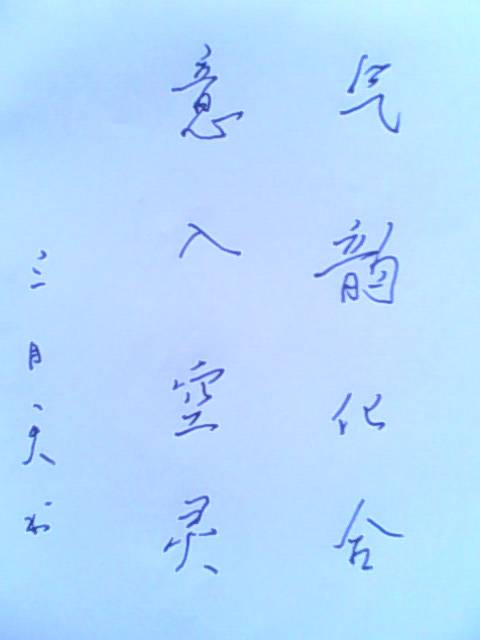 气韵化合
意入空灵
三月天书